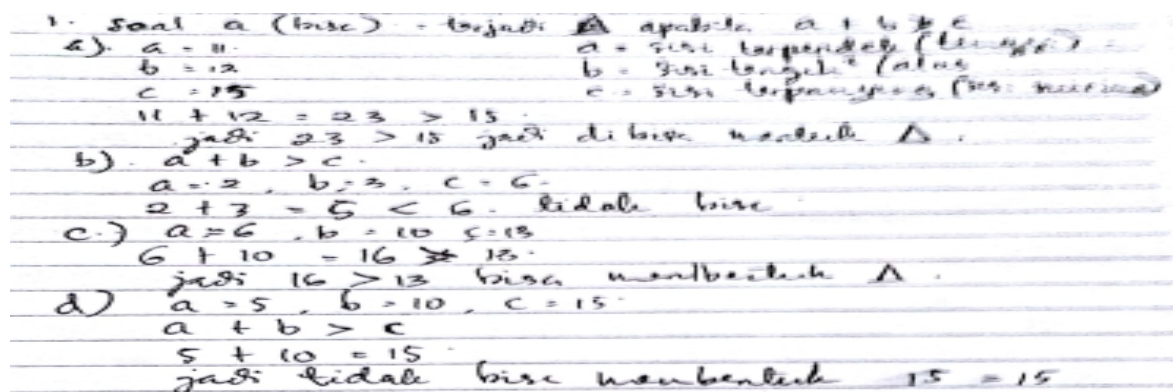 1. soal a (bisa) - terjadi △ apabila a + b > c
a). a = 11. a = sisi terpendek (tinggi)
b = 12 b = sisi tengah² (alas
c = 15 c = sisi terpanjang (sisi miring)
11 + 12 = 23 > 15.
jadi 23 > 15 jadi di bisa △.
b). a + b > c.
a = 2, b = 3, c = 6.
2 + 3 = 5 < 6. tidak bisa.
c.) a = 6, b = 10 c = 13
6 + 10 = 16 > 13.
jadi 16 > 13 bisa △.
d) a = 5, b = 10, c = 15.
a + b > c
5 + 10 = 15.
jadi tidak bisa 15 = 15